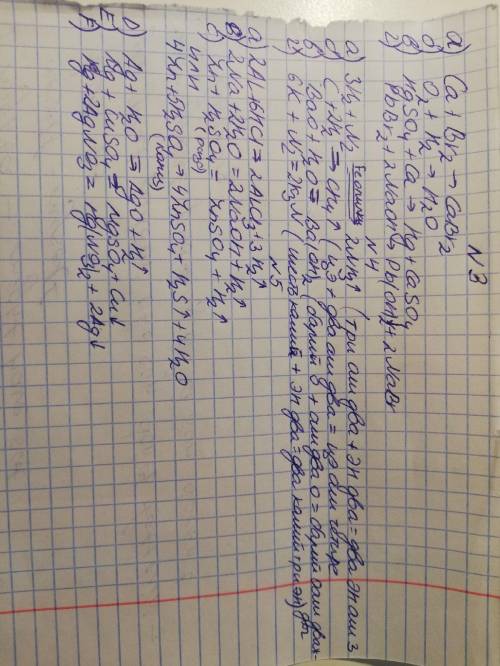 N 3
а) Ca + Br2 → CaBr2
б) O2 + H2 → H2O
в) HgSO4 + Ca → Hg + CaSO4
г) PbBr2 + 2NaOH → Pb(OH)2 + 2NaBr
N 4
а) 3H2 + N2 = 2NH3↑ (три аш два + эн два = два эн аш 3
б) C + 2H2 = CH4↑ (цэ + два аш два = цэ аш четыре
в) BaO + H2O = Ba(OH)2 (барий о + аш два о = барий о аш дваж-
г) 6K + N2 = 2K3N (шесть калий + эн два = два калий три эн) ды
N 5
а) 2Al + 6HCl = 2AlCl3 + 3H2↑
B) 2Na + 2H2O = 2NaOH + H2↑
C) Zn + H2SO4 = ZnSO4 + H2↑
(розб)
или
4Zn + 5H2SO4 = 4ZnSO4 + H2S↑ + 4H2O
(конц)
D) Ag + H2O = AgO + H2↑
E) Mg + CuSO4 = MgSO4 + Cu↓
F) Hg + 2AgNO3 = Hg(NO3)2 + 2Ag↓